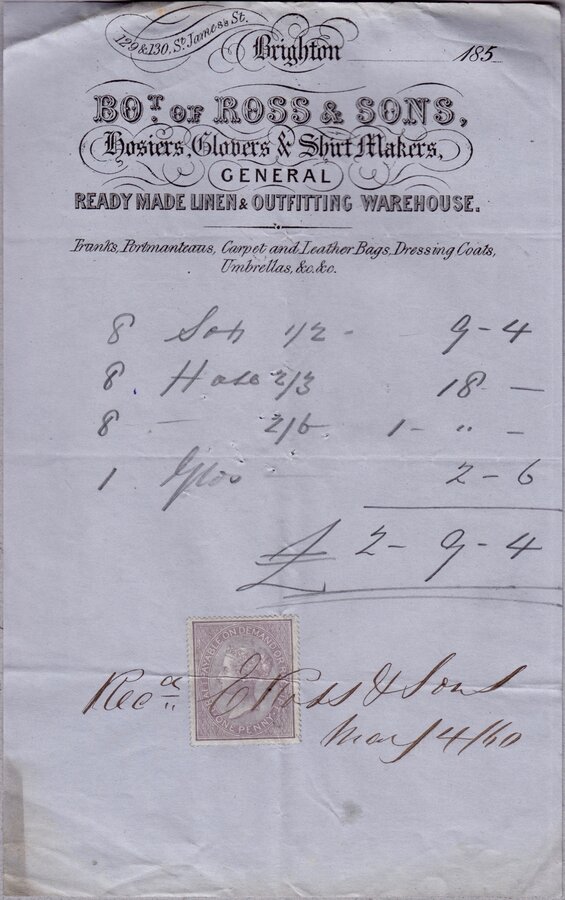 129 & 130, St. James's St.
Brighton 185
BOT. OF ROSS & SONS,
Hosiers, Glovers & Shirt Makers,
GENERAL
READY MADE LINEN & OUTFITTING WAREHOUSE.
Trunks, Portmanteaus, Carpet and Leather Bags, Dressing Coats,
Umbrellas, &c. &c.
8 1/2 - 9 - 4
8 Hose 2/3 18 -
8 - 2/6 1 - " -
1 2 - 6
£ 2 - 9 - 4
PAYABLE ON DEMAND OR
ONE PENNY
Recd Ross & Sons
4/60